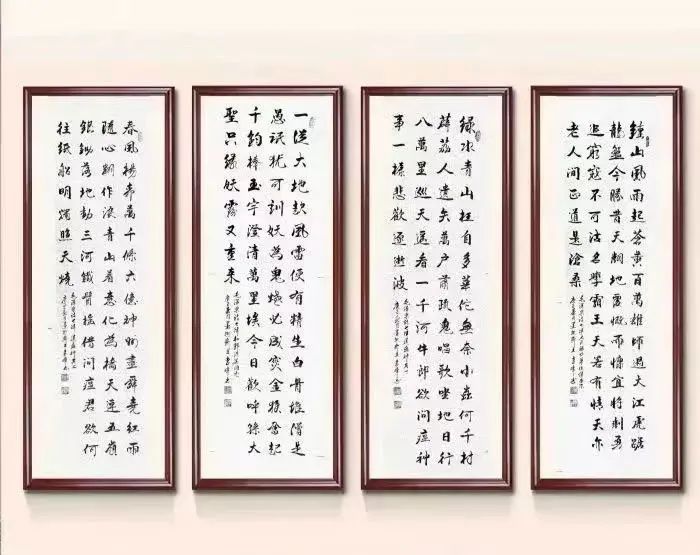 鐘山風雨起蒼黄百萬雄師過大江虎踞
龍盤今勝昔天翻地覆慨而慷宜將剩勇
追窮寇不可沽名學霸王天若有情天亦
老人間正道是滄桑
緑水青山枉自多華佗無奈小蟲何千村
薜荔人遺矢萬户蕭疏鬼唱歌坐地日行
八萬里巡天遥看一千河牛郎欲問瘟神
事一樣悲歡逐逝波
一從大地起風雷便有精生白骨堆僧是
愚氓猶可訓妖爲鬼蜮必成災金猴奮起
千鈞棒玉宇澄清萬里埃今日歡呼孫大
聖只緣妖霧又重來
春風楊柳萬千條六億神州盡舜堯紅雨
隨心翻作浪青山着意化爲橋天連五嶺
銀鋤落地動三河鐵臂摇借問瘟君欲何
往紙船明燭照天燒